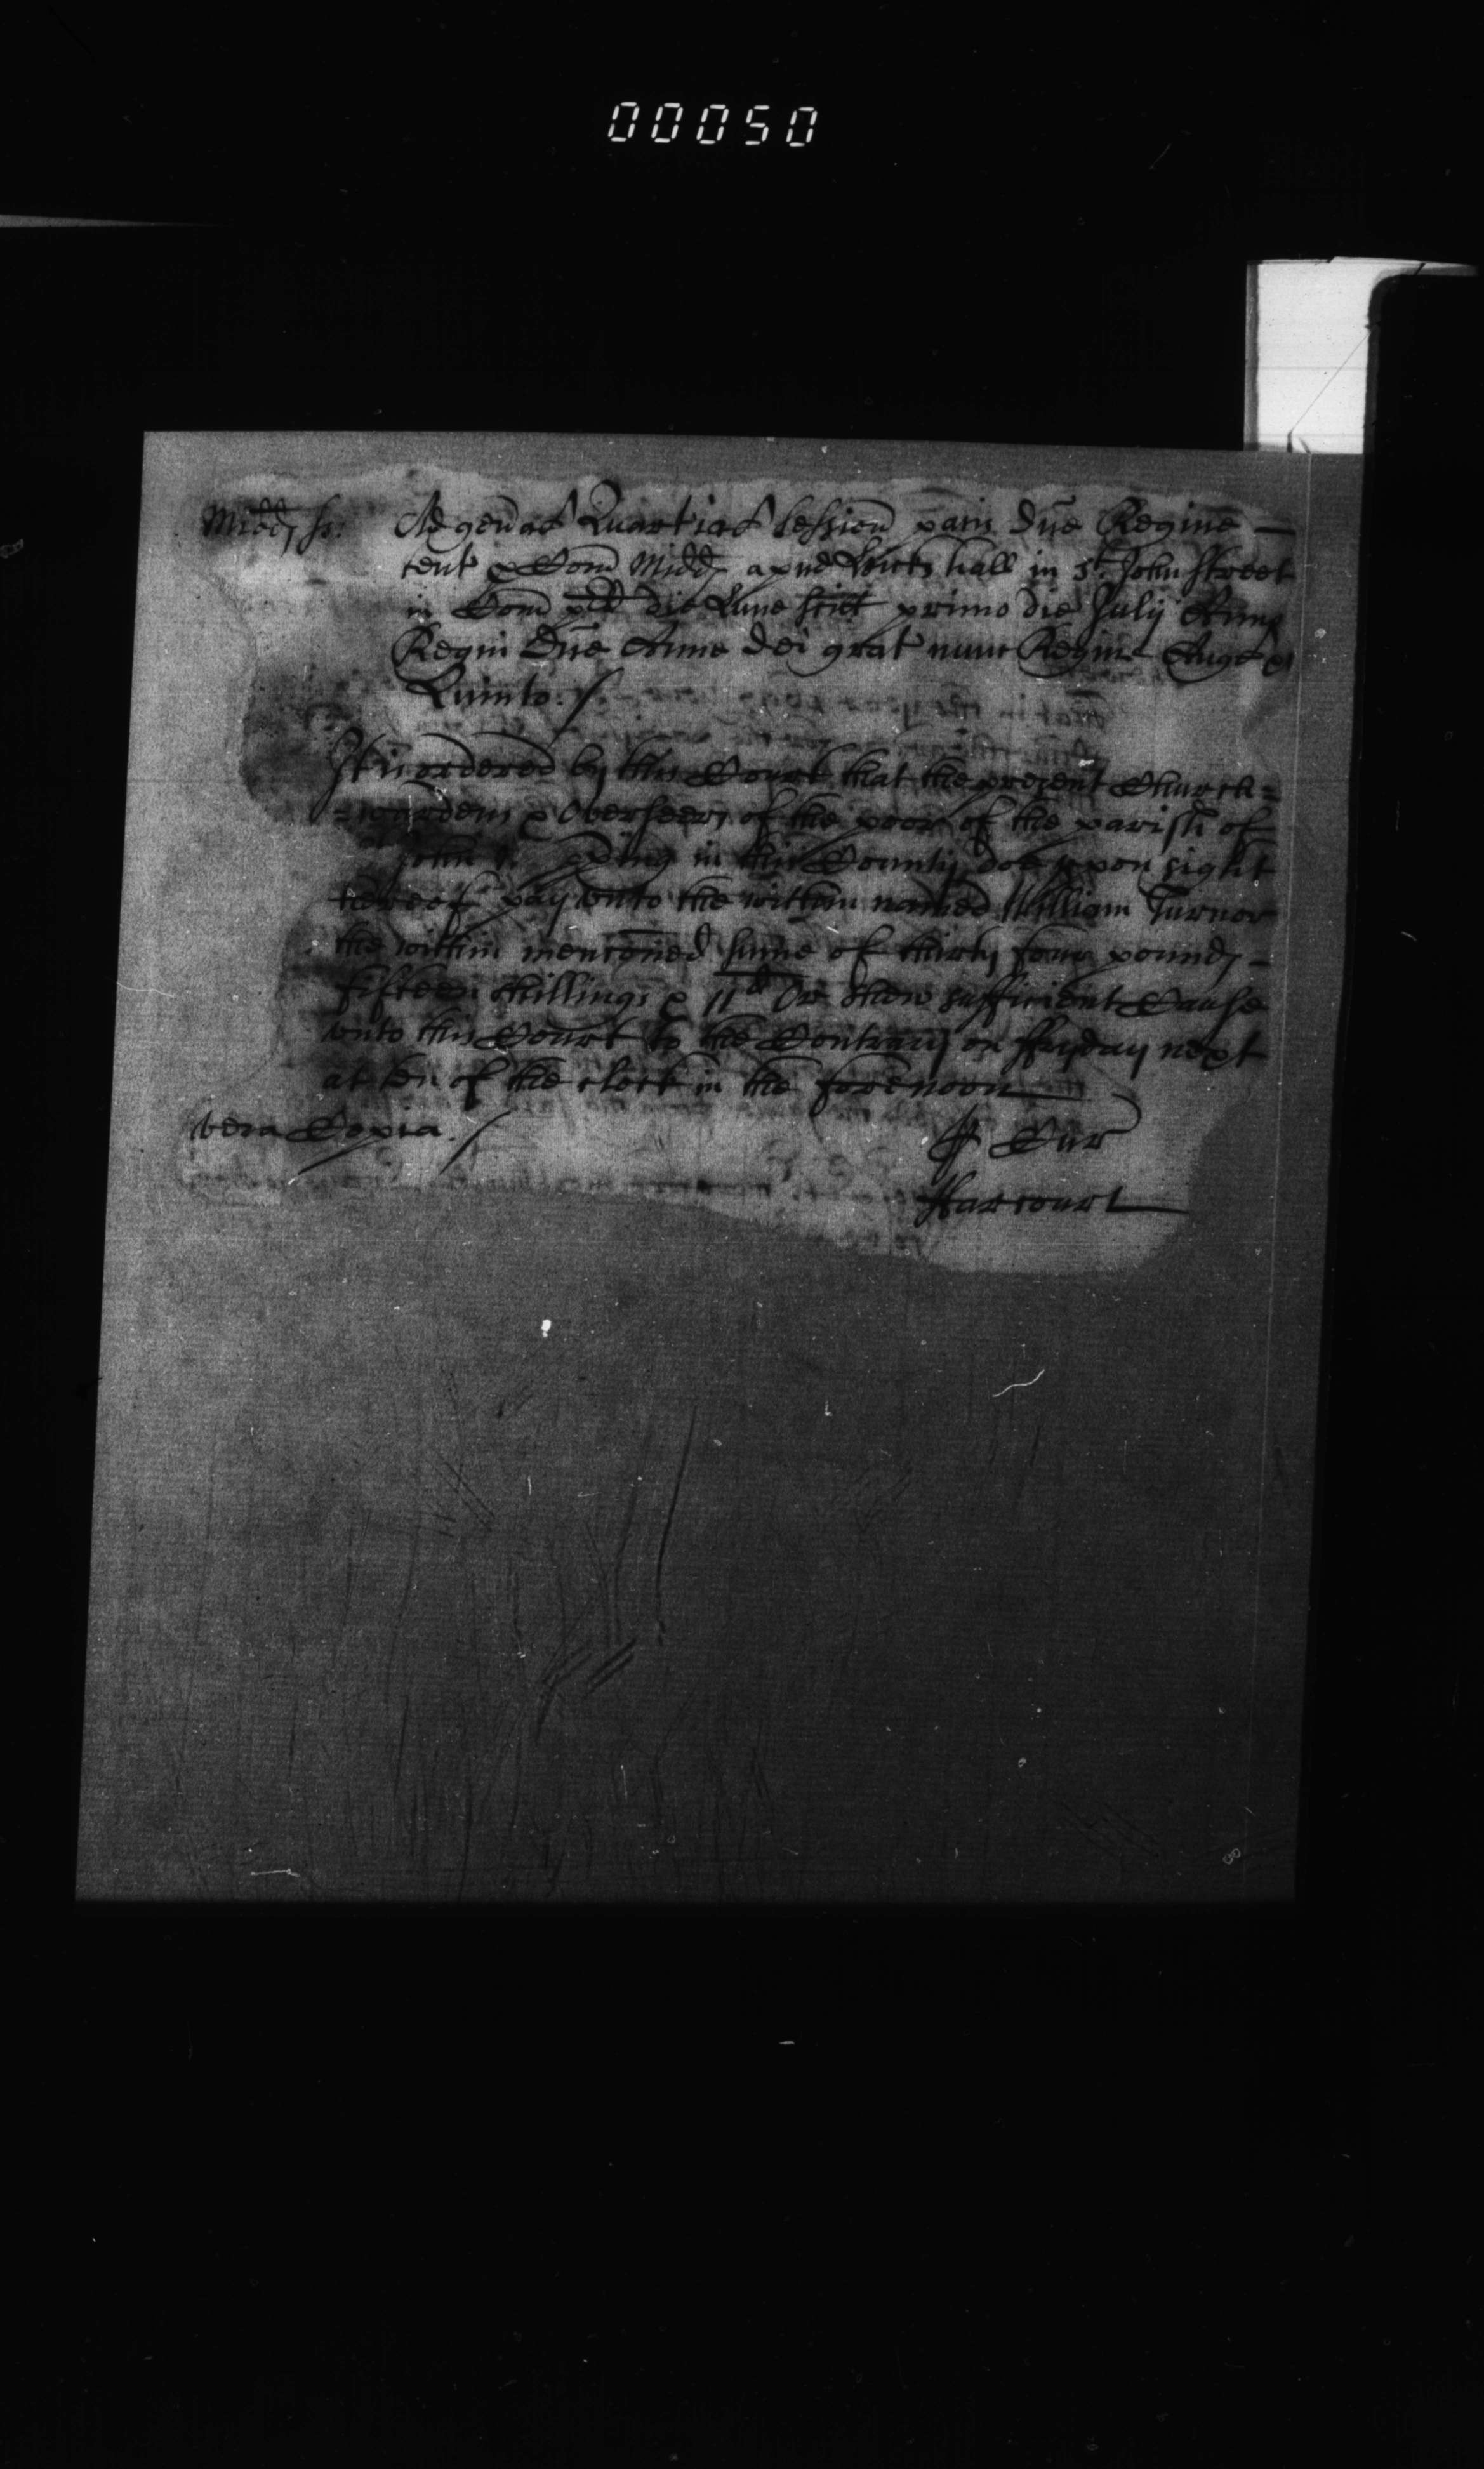 00050
Midd ss. Ad gen'al Quartial Session pacis Dne Regine -
tent p Com Midd apud Hicks hall in St. John Street
in Com p'd die Lune scilt primo die July Anno
Regni Dne Anne Dei grat nunc Regine Angl &c
Quinto. /
It is ordered by this Court that the present Church=
=wardens & Overseers of the poor of the parish of
St John Wapping in this County doe upon sight
hereof pay unto the within named William Turner
the within menconed sume of thirty four pounds -
fifteen shillings & 11d Or shew sufficient Cause
unto this Court to the Contrary on ffryday next
at ten of the clock in the forenoon
vera Copia. /
P Cur
Harcourt